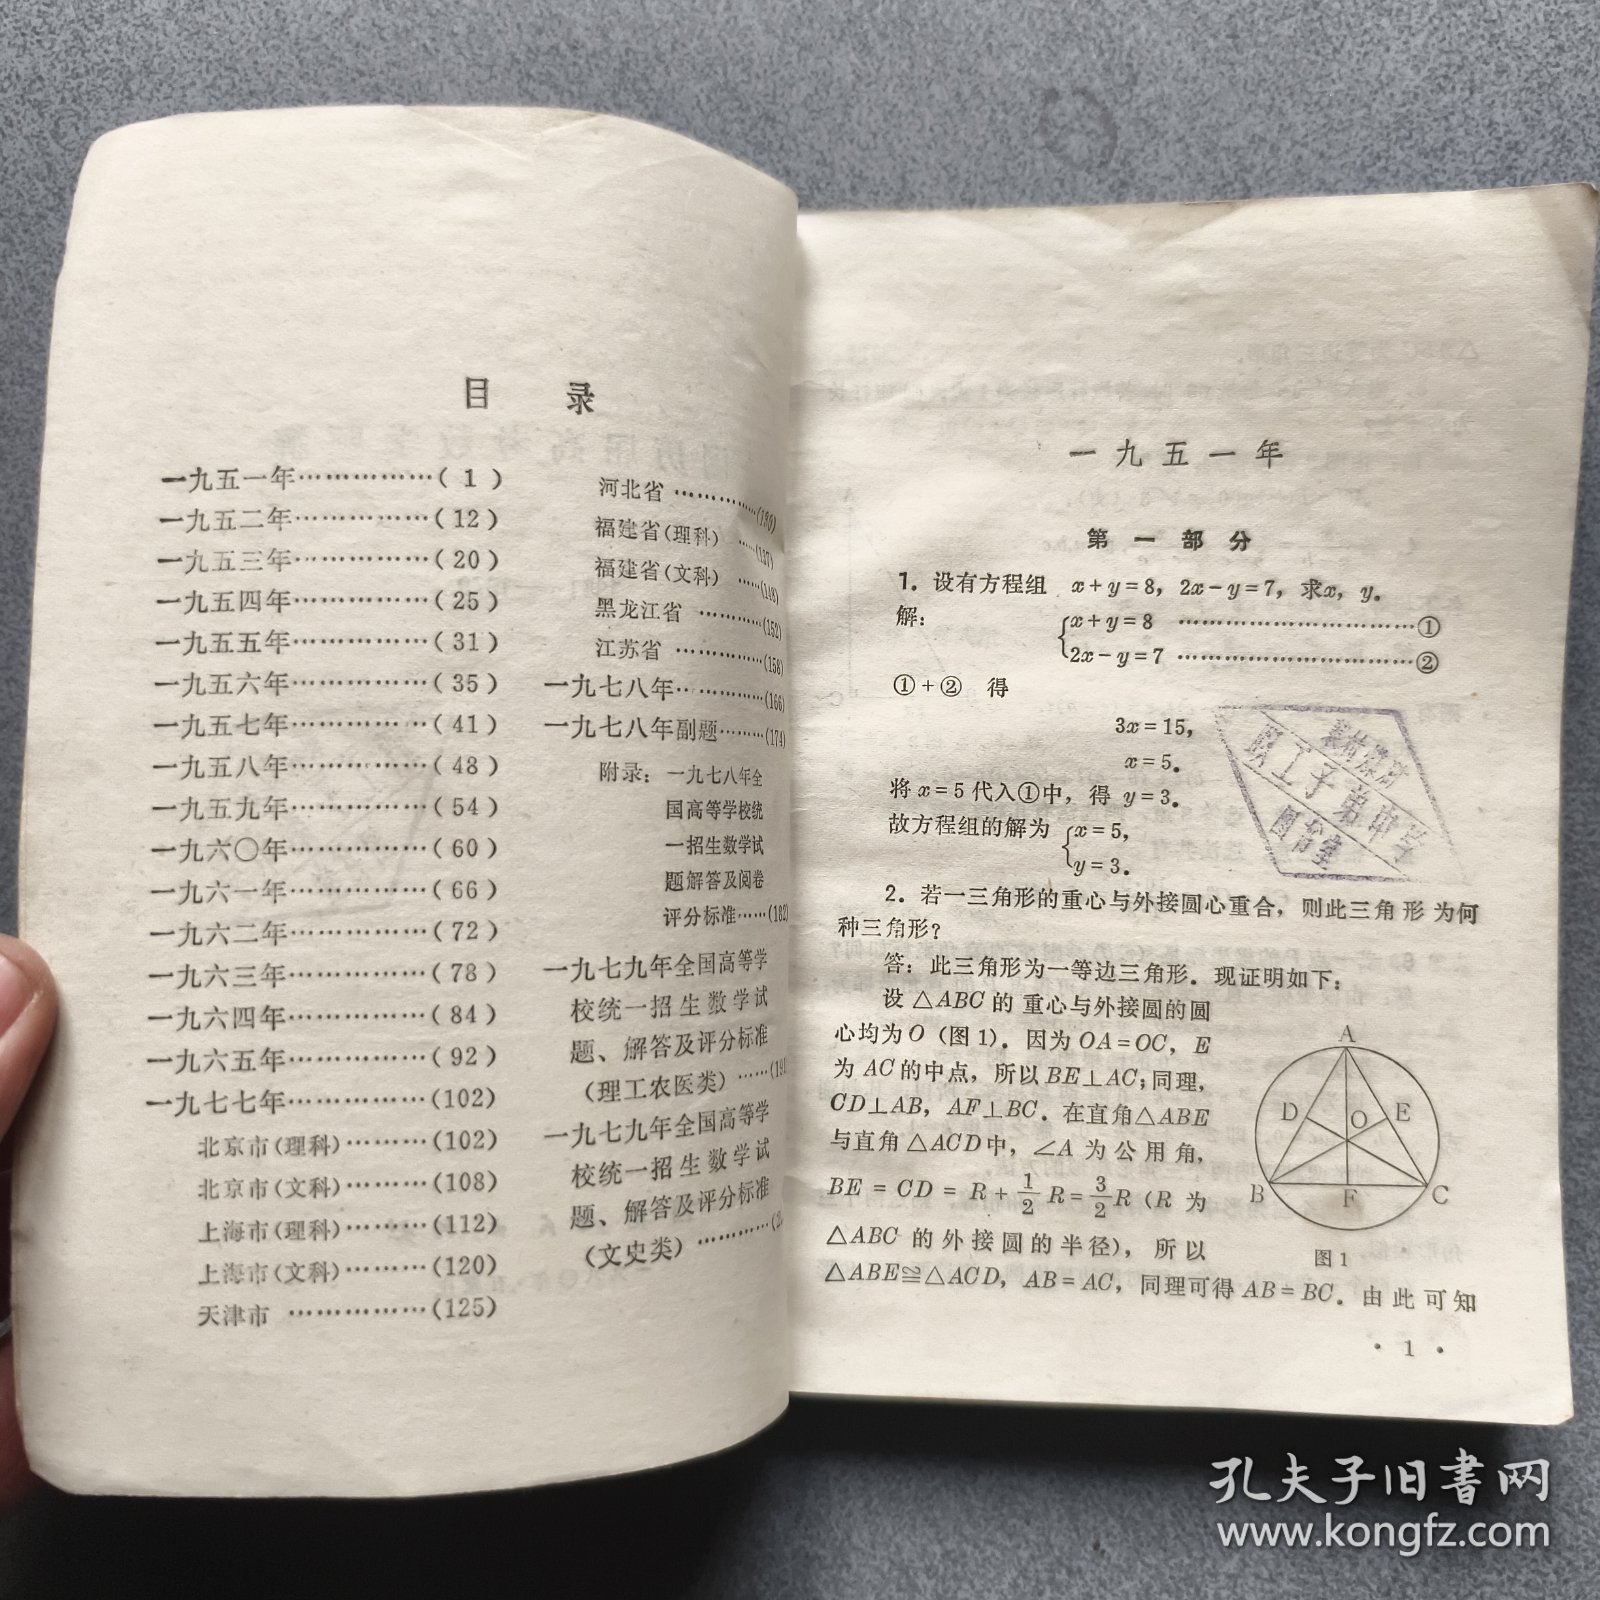 目 录
一九五一年……………( 1 )
一九五二年……………(12)
一九五三年……………(20)
一九五四年……………(25)
一九五五年……………(31)
一九五六年……………(35)
一九五七年……………(41)
一九五八年……………(48)
一九五九年……………(54)
一九六〇年……………(60)
一九六一年……………(66)
一九六二年……………(72)
一九六三年……………(78)
一九六四年……………(84)
一九六五年……………(92)
一九七七年……………(102)
北京市(理科)………(102)
北京市(文科)………(108)
上海市(理科)………(112)
上海市(文科)………(120)
天津市 ……………(125)
河北省 ……………
福建省(理科) ……(137)
福建省(文科) ……(148)
黑龙江省 …………(152)
江苏省 ……………(158)
一九七八年……………(166)
一九七八年副题………(174)
附录：一九七八年全
国高等学校统
一招生数学试
题解答及阅卷
评分标准……(182)
一九七九年全国高等学
校统一招生数学试
题、解答及评分标准
(理工农医类)……
一九七九年全国高等学
校统一招生数学试
题、解答及评分标准
(文史类)…………
一九五一年
第一部分
1. 设有方程组 x+y=8，2x-y=7，求x，y。
解： {x+y=8 ……………………………①
2x-y=7 ……………………………②
①+② 得
3x=15，
x=5。
将x=5代入①中，得 y=3。
故方程组的解为 {x=5，
y=3。
2. 若一三角形的重心与外接圆心重合，则此三角形为何
种三角形？
答：此三角形为一等边三角形．现证明如下：
设△ABC的重心与外接圆的圆
心均为O (图1)．因为OA=OC，E
为AC的中点，所以BE⊥AC；同理，
CD⊥AB，AF⊥BC．在直角△ABE
与直角△ACD中，∠A为公用角，
BE=CD=R+1/2 R=3/2 R (R为
△ABC的外接圆的半径)，所以
△ABE≅△ACD，AB=AC，同理可得AB=BC．由此可知
A
D
O
E
B
F
C
图1
· 1 ·
职工子弟中学
图书室
孔夫子旧书网
www.kongfz.com